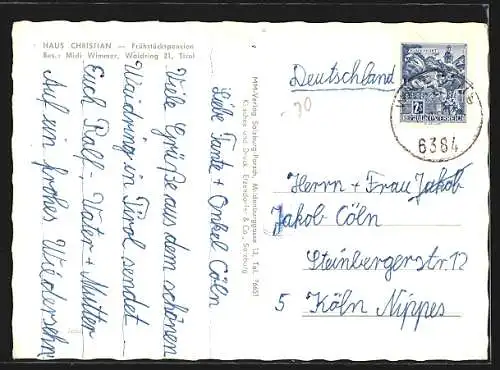 HAUS CHRISTIAN — Frühstückspension
Bes.: Midi Wimmer, Waidring 21, Tirol
Liebe Tante + Onkel Cöln
Viele Grüße aus dem schönen
Waidring in Tirol sendet
Euch Ralf, Vater + Mutter
Auf ein frohes Wiedersehn
MM-Verlag Salzburg-Parsch,
Klischee und Druck
& Co., Salzburg
Deutschland
70
6384
REPUBLIK ÖSTERREICH
Herrn + Frau Jakob
Jakob Cöln
Steinbergerstr. 12
5 Köln Nippes